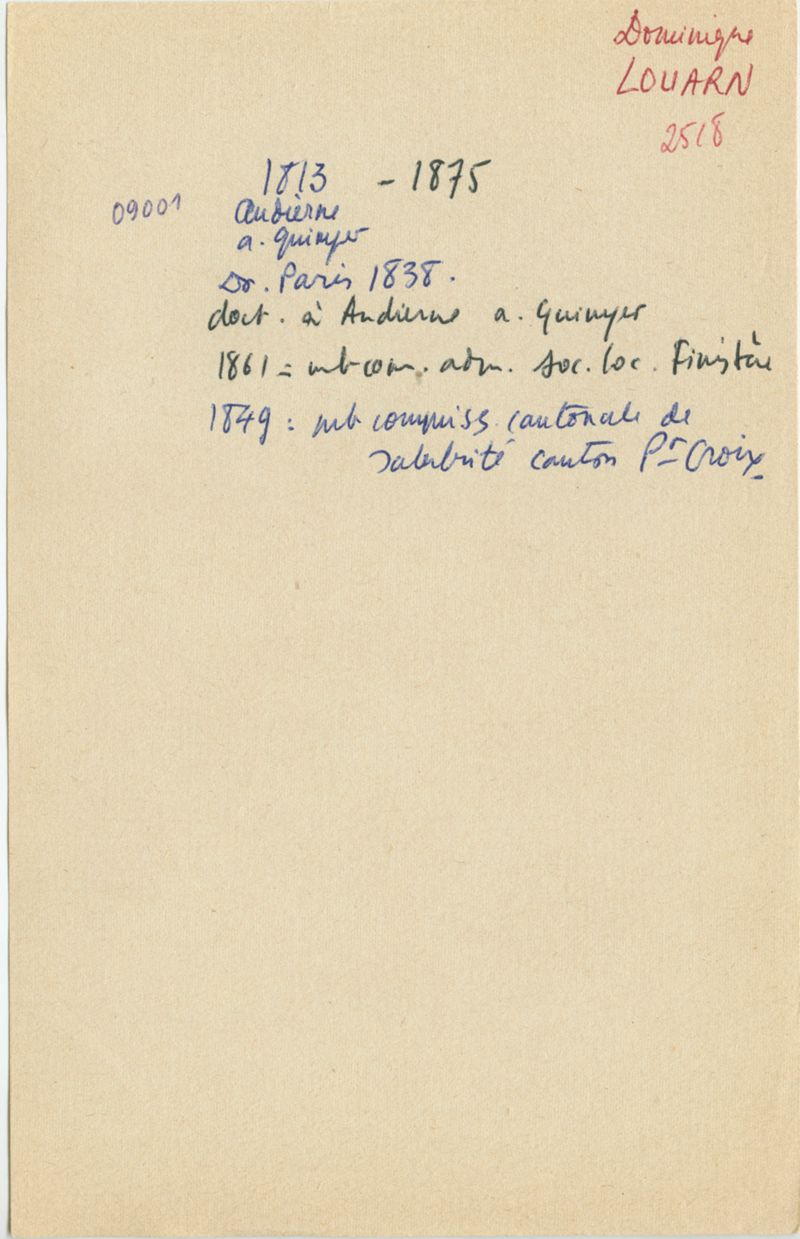 Dominique
LOUARN
2518
1813 - 1875
09001 Audierne
a. Quimper
Dr. Paris 1838.
doct. à Audierne a. Quimper
1861 = mb com. adm. soc. loc. Finistère
1849 : mb commiss. cantonale de
salubrité canton Pt Croix